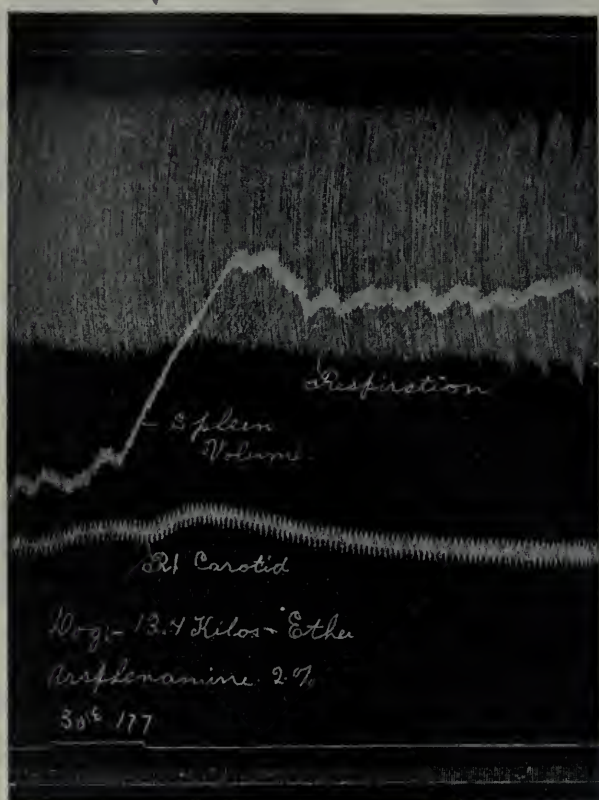 Respiration
Spleen
Volume.
Rt Carotid
Dog:- 13.4 Kilos - Ether
Arsphenamine 2%
177